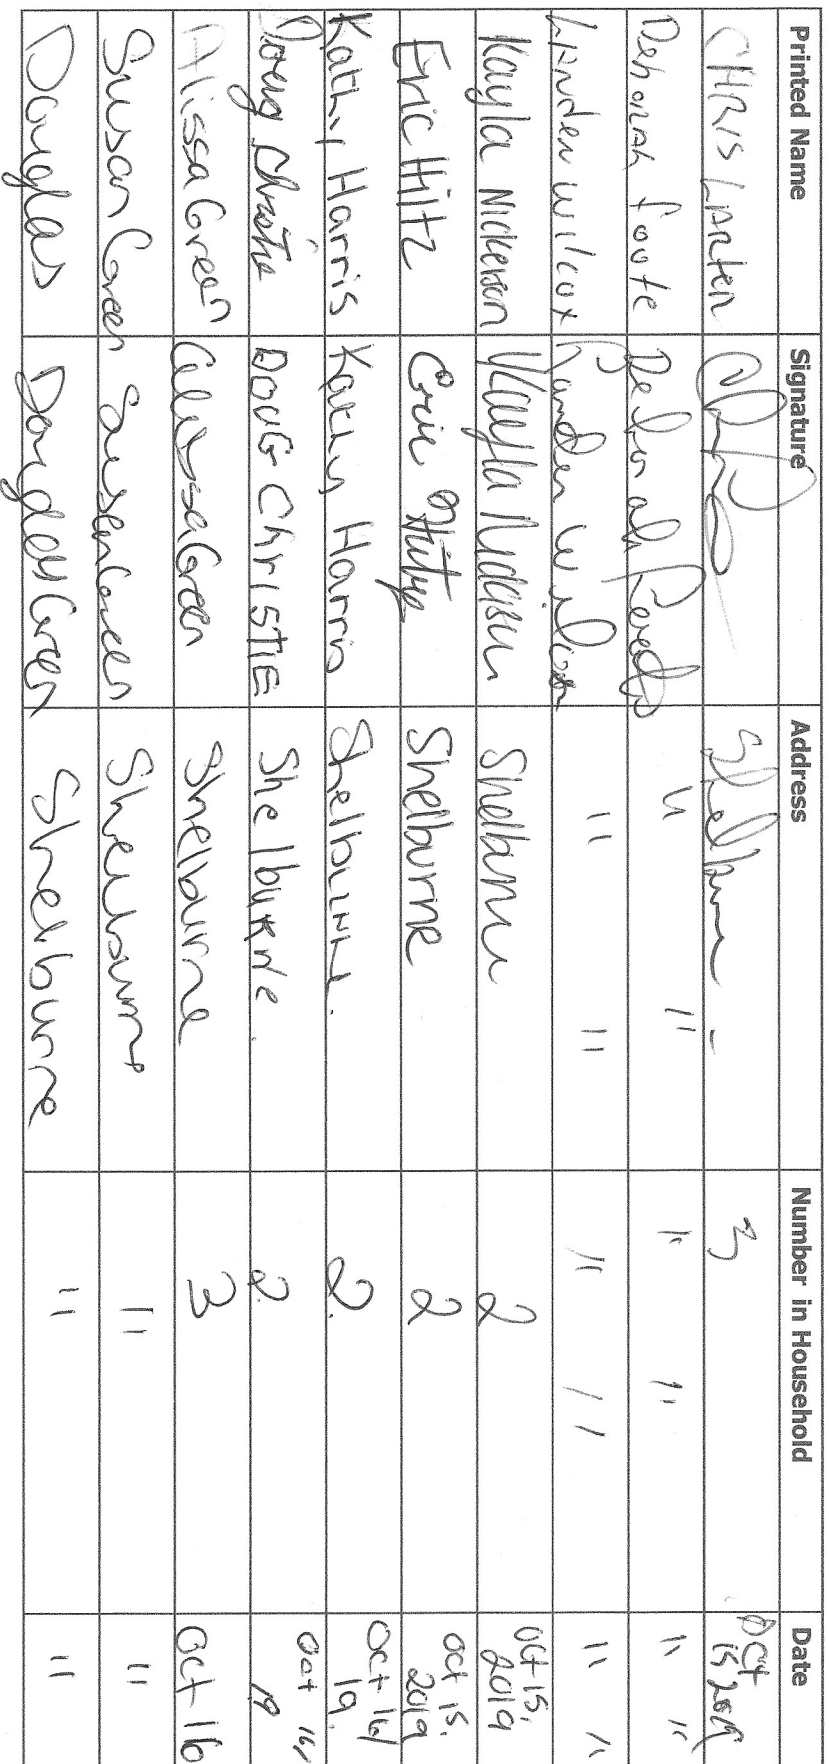 Printed Name Signature Address Number in Household Date
CHRIS LARTER Shelburne - 3 Oct 15 2019
Deborah Foote Deborah Foote " " " " " "
Landen Wilcox Landen Wilcox " " " " " "
Kayla Nickerson Kayla Nickerson Shelburne 2 Oct 15, 2019
Eric Hiltz Eric Hiltz Shelburne 2 Oct 15, 2019
Kathy Harris Kathy Harris Shelburne. 2. Oct 16/ 19.
Doug Christie DOUG CHRISTIE Shelburne. 2. Oct 16/ 19
Alissa Green Alissa Green Shelburne 3 Oct 16
Susan Green Susan Green Shelburne " "
Douglas Douglas Green Shelburne " "